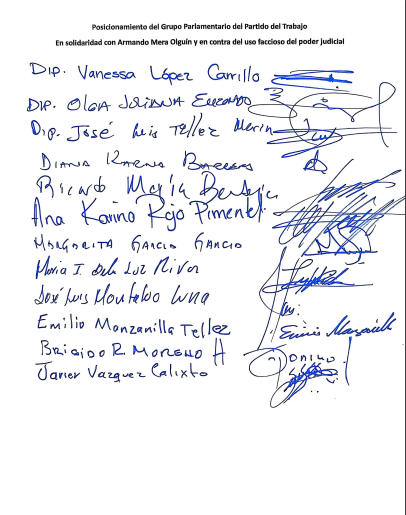 Posicionamiento del Grupo Parlamentario del Partido del Trabajo
En solidaridad con Armando Mera Olguín y en contra del uso faccioso del poder judicial
Dip. Vanessa López Carrillo
Dip. Olga Juliana Elizondo
Dip. José Luis Tellez Marin
Diana Karina Barreras
Ricardo Mejía Berdeja
Ana Karina Rojo Pimentel
Margarita García García
Maria I. De la Luz Rivas
José Luis Montalvo Luna
Emilio Manzanilla Tellez
Brigido R. Moreno H
Javier Vazquez Calixto